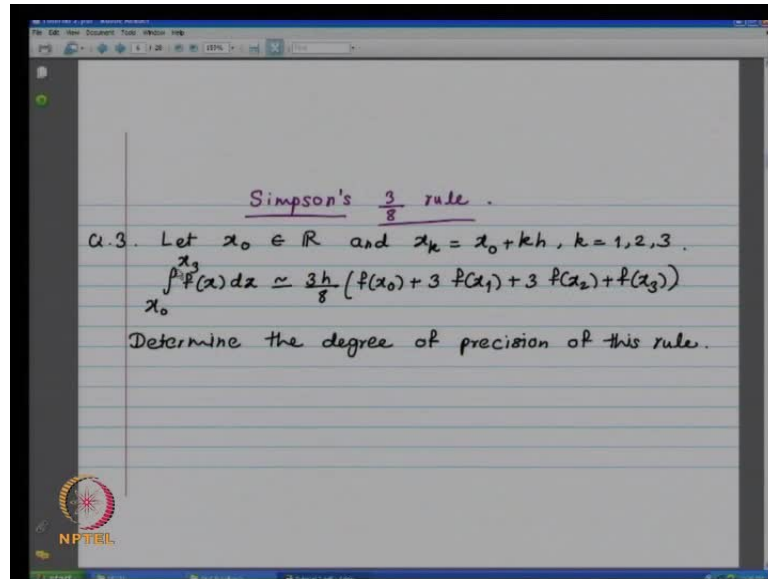 File Edit View Document Tools Window Help
6 / 28
Simpson's 3/8 rule.
Q.3. Let x₀ ∈ ℝ and xₖ = x₀ + kh, k = 1, 2, 3.
∫_{x₀}^{x₃} f(x) dx ≃ 3h/8 (f(x₀) + 3 f(x₁) + 3 f(x₂) + f(x₃))
Determine the degree of precision of this rule.
NPTEL